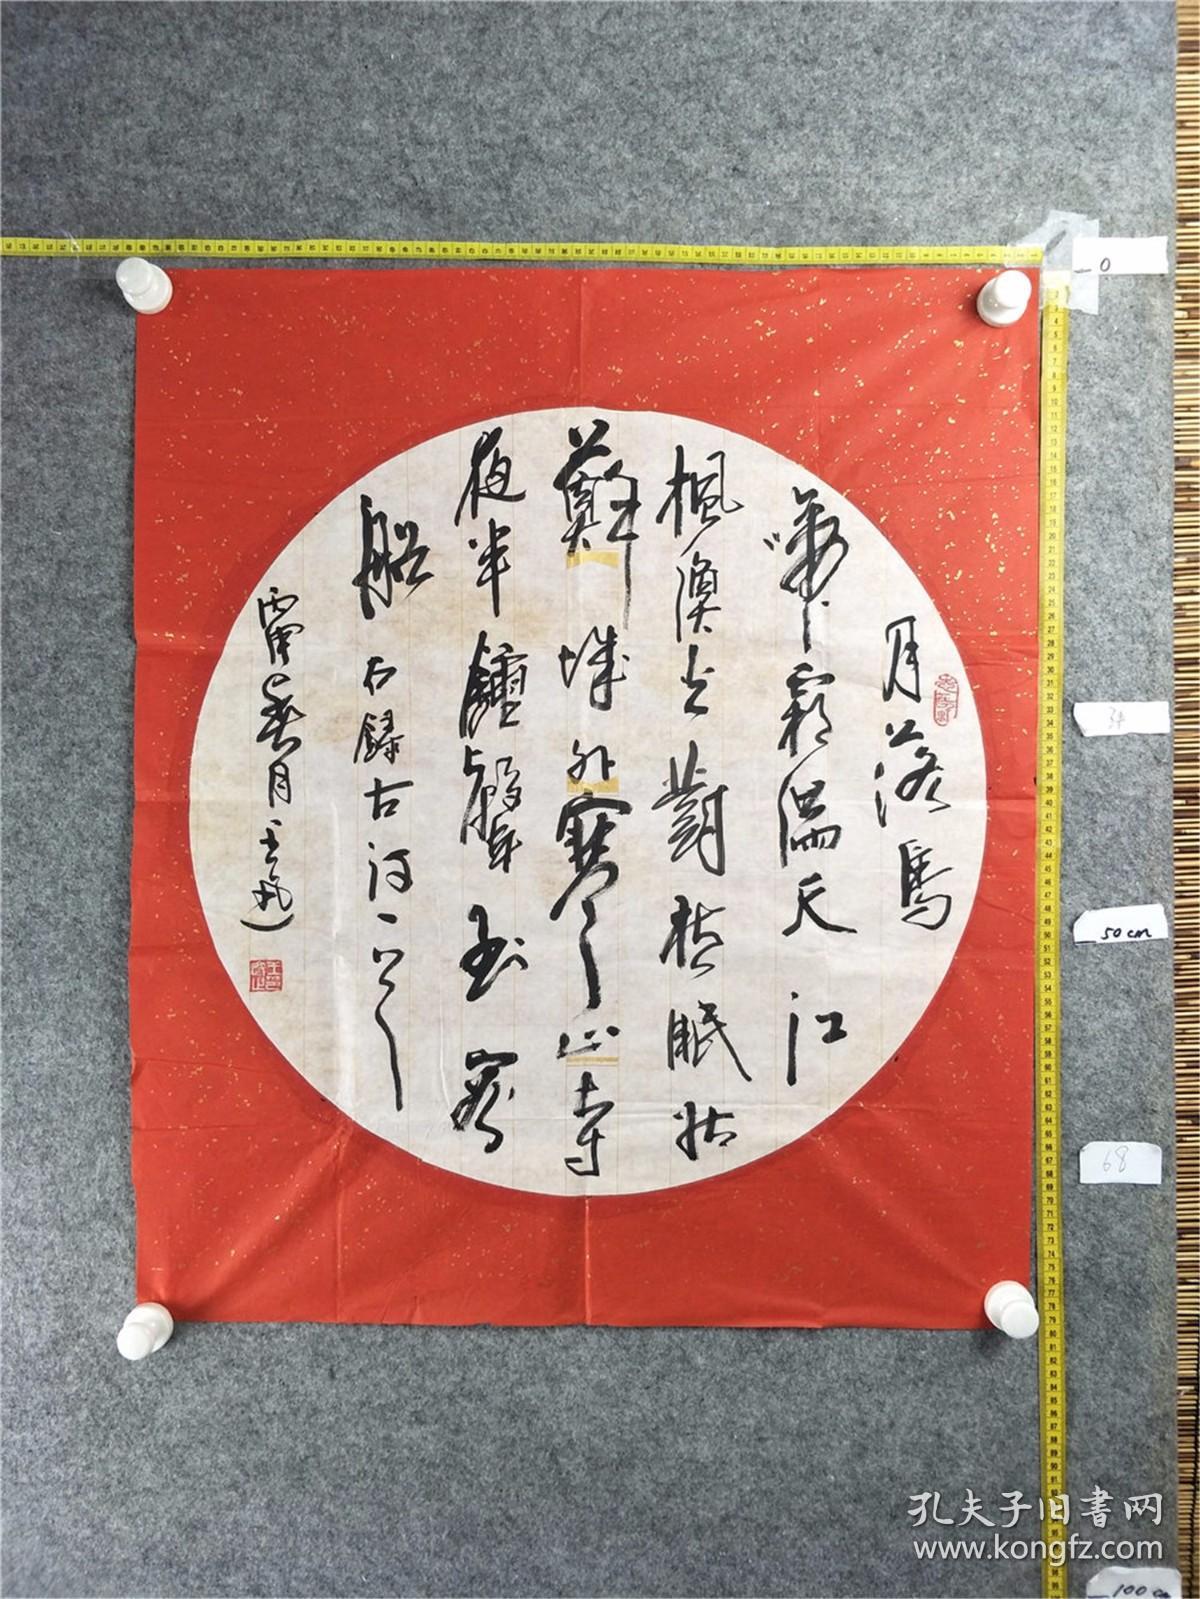 月落烏
啼霜滿天江
楓漁火對愁眠姑
蘇城外寒山寺
夜半鐘聲到客
船 右録古诗一首
丙申春月
0
34
50cm
68
100cm
孔夫子旧书网
www.kongfz.com